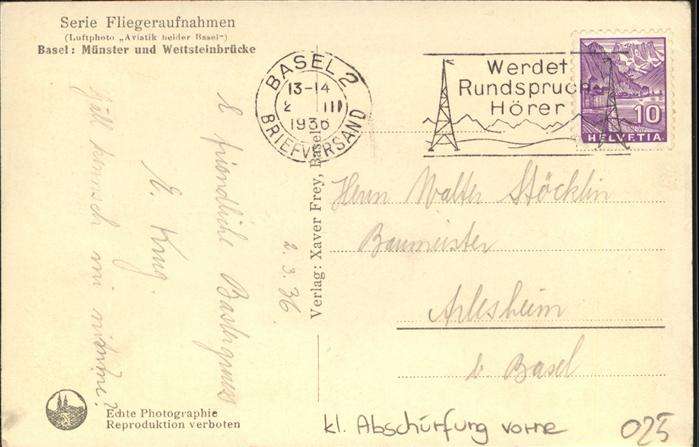 Serie Fliegeraufnahmen
(Luftphoto „Aviatik beider Basel")
Basel: Münster und Wettsteinbrücke
BASEL 2
13-14
2 III
1936
BRIEFVERSAND
Werdet
Rundspruch
Hörer
10
HELVETIA
Verlag: Xaver Frey, Basel
2.3.36
E friendliche
E. Krug.
Herrn Walter Stöcklin
Baumeister
Arlesheim
b. Basel
Echte Photographie
Reproduktion verboten
kl. Abschürfung vorne
025